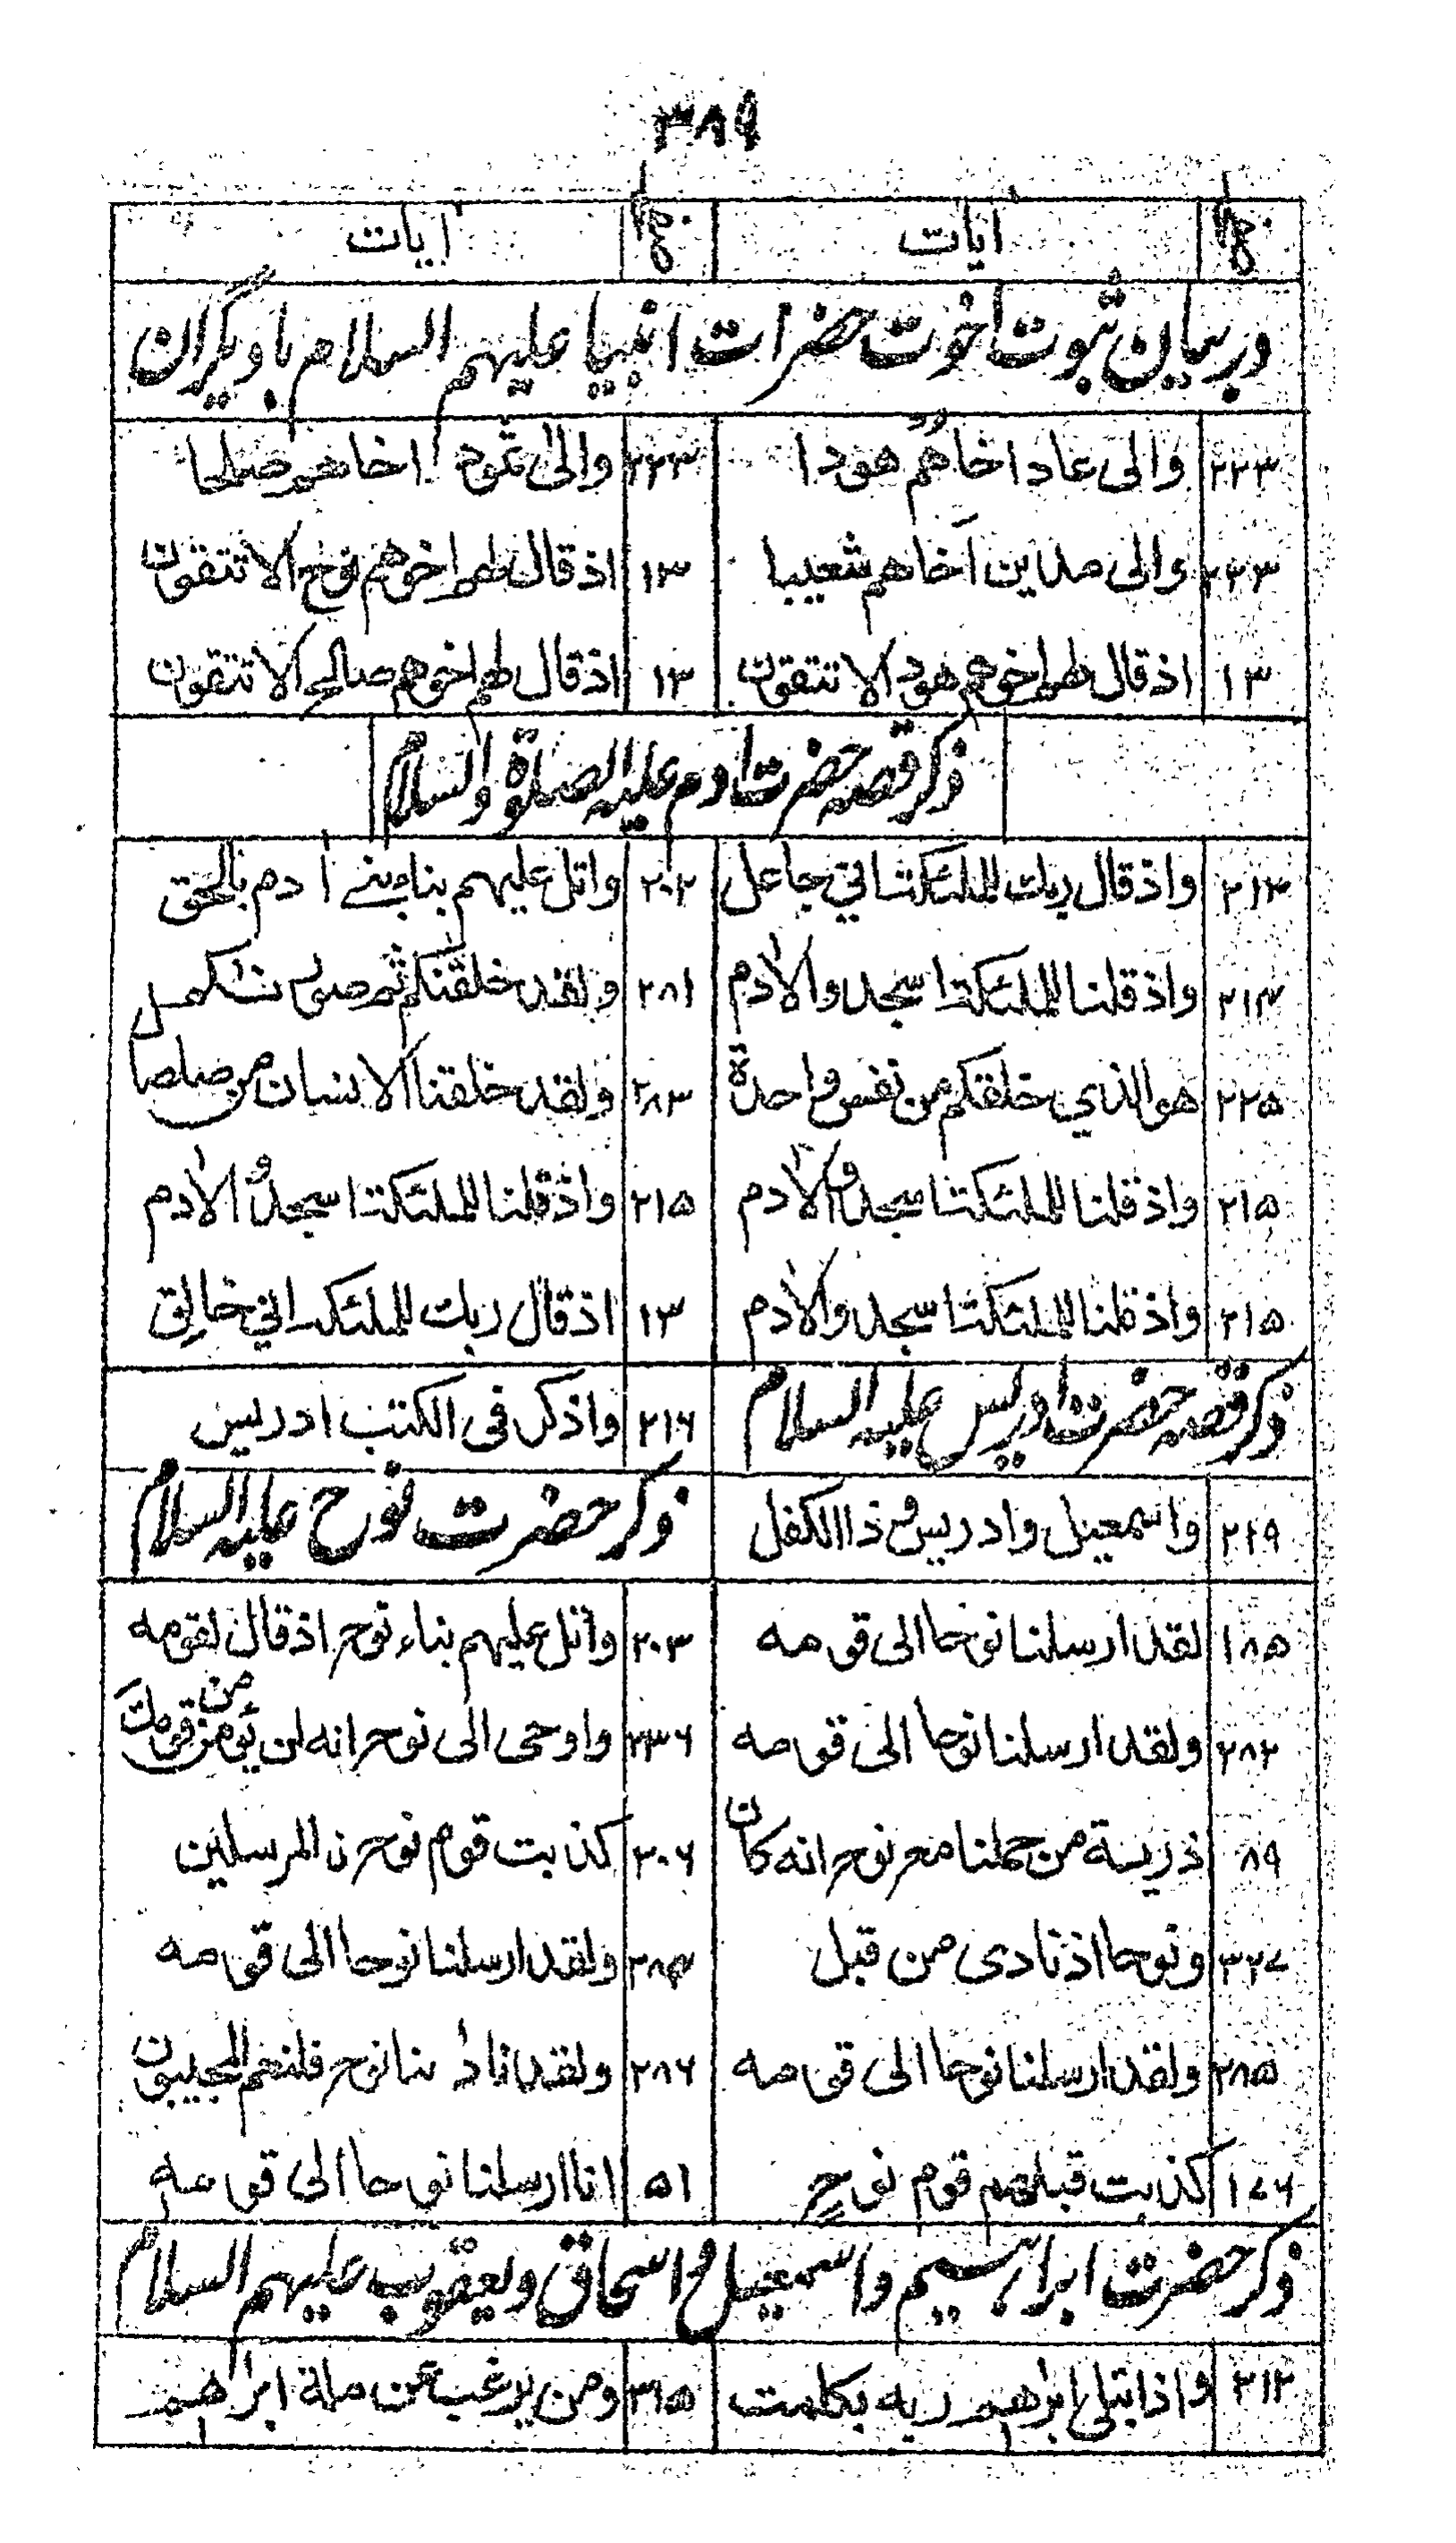 ۳۸۹
صفحہ ایات صفحہ ایات
در بیان ثبوت اخوت حضرات انبیا علیہم السلام با دیگران
۲۲۳ والی عاد اخاهم هودا ۲۲۳ والی ثمود اخاهم صلحا
۲۲۳ والی مداین اخاهم شعیبا ۱۳ اذ قال لهم اخوهم نوح الا تتقون
۱۳ اذ قال لهم اخوهم هود الا تتقون ۱۳ اذ قال لهم اخوهم صالح الا تتقون
ذکر قصہ حضرت ادم علیہ الصلوۃ والسلام
۲۱۳ واذ قال ربك للملئكة اني جاعل ۲۰۲ واتل عليهم بناء بنے ادم بالحق
۲۱۴ واذ قلنا للملئكة اسجدوا لادم ۲۸۱ ولقد خلقنكم ثم صورنكم
۲۲۵ هو الذي خلقكم من نفس واحدة ۲۸۳ ولقد خلقنا الانسان من صلصال
۲۱۵ واذ قلنا للملئكة اسجدوا لادم ۲۱۵ واذ قلنا للملئكة اسجدوا لادم
۲۱۵ واذ قلنا للملئكة اسجدوا لادم ۱۳ اذ قال ربك للملئكة اني خالق
ذکر قصہ حضرت ادریس علیہ السلام ۲۱۶ واذكر فى الكتب ادريس
۲۱۹ واسمعيل وادريس و ذا الكفل ذکر حضرت نوح علیہ السلام
۱۸۵ لقد ارسلنا نوحا الى قومه ۲۰۳ واتل عليهم بناء نوح اذ قال لقومه
۲۸۲ ولقد ارسلنا نوحا الى قومه ۲۳۶ واوحى الى نوح انه لن يؤمن من قومك
۸۹ ذرية من حملنا مع نوح انه كان ۳۰۶ كذبت قوم نوح ن المرسلين
۳۲۷ ونوحا اذ نادى من قبل ۲۸۴ ولقد ارسلنا نوحا الى قومه
۲۸۵ ولقد ارسلنا نوحا الى قومه ۲۸۶ ولقد نادىنا نوح فلنعم المجيبون
۱۷۶ كذبت قبلهم قوم نوح ۵۱ انا ارسلنا نوحا الى قومه
ذکر حضرت ابراہیم و اسمعیل و اسحاق و یعقوب علیہم السلام
۲۱۲ واذ ابتلى ابرهيم ربه بكلمت ۳۱۵ ومن يرغب عن ملة ابراهيم